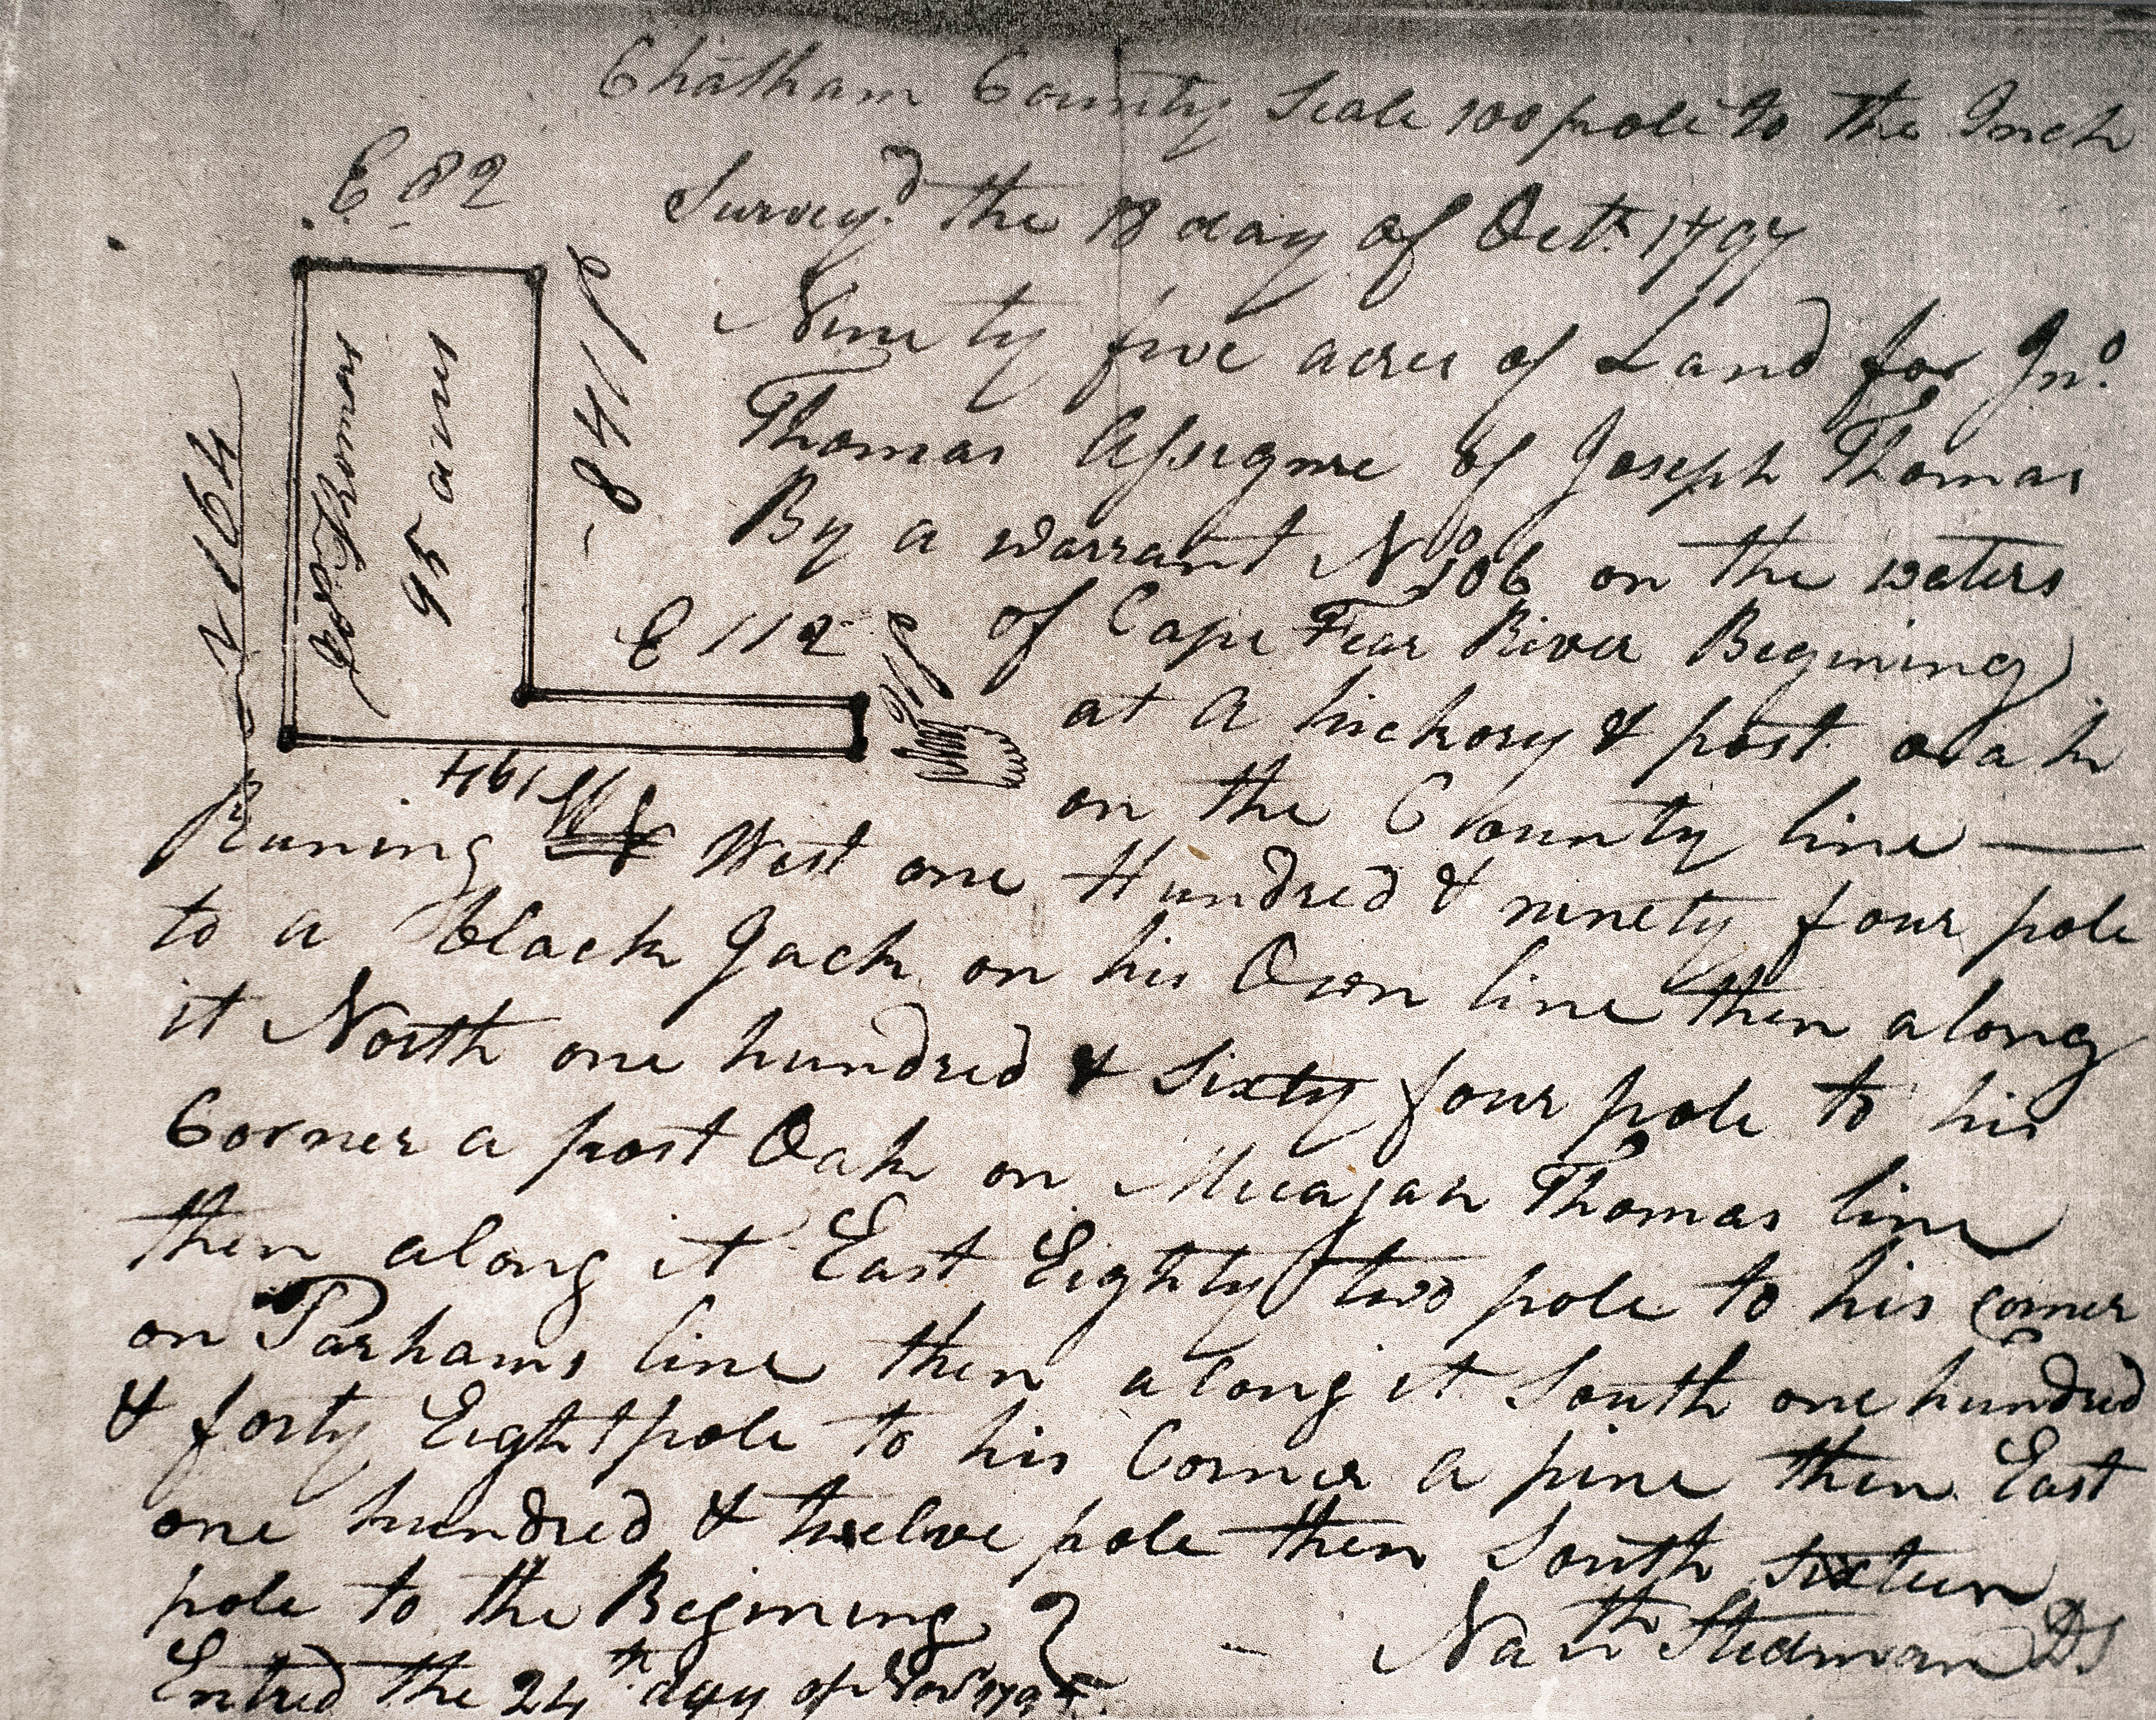 Chatham County Scale 100 pole to the Inch
E 82
Survey.d the 18 day of Oct.r 1797
Ninety five acres of Land for Jn.o
Thomas Assignee of Joseph Thomas
By a warrant No 106 on the waters
of Cape Fear River Begining
at a hickory & post oak
on the County line —
Jno Thomas
95 acres
N 164
S 148
E 112
S 16
W 194
Runing West one Hundred & ninety four pole
to a black Jack on his Own line then along
it North one hundred & Sixty four pole to his
Corner a post Oak on Micajah Thomas line
then along it East Eighty two pole to his corner
on Parhams line then along it South one hundred
& forty Eight pole to his Corner a pine then East
one hundred & twelve pole then South sixteen
pole to the Begining
— Nath Stedman DS
Entred the 24th day of Nov.r 179